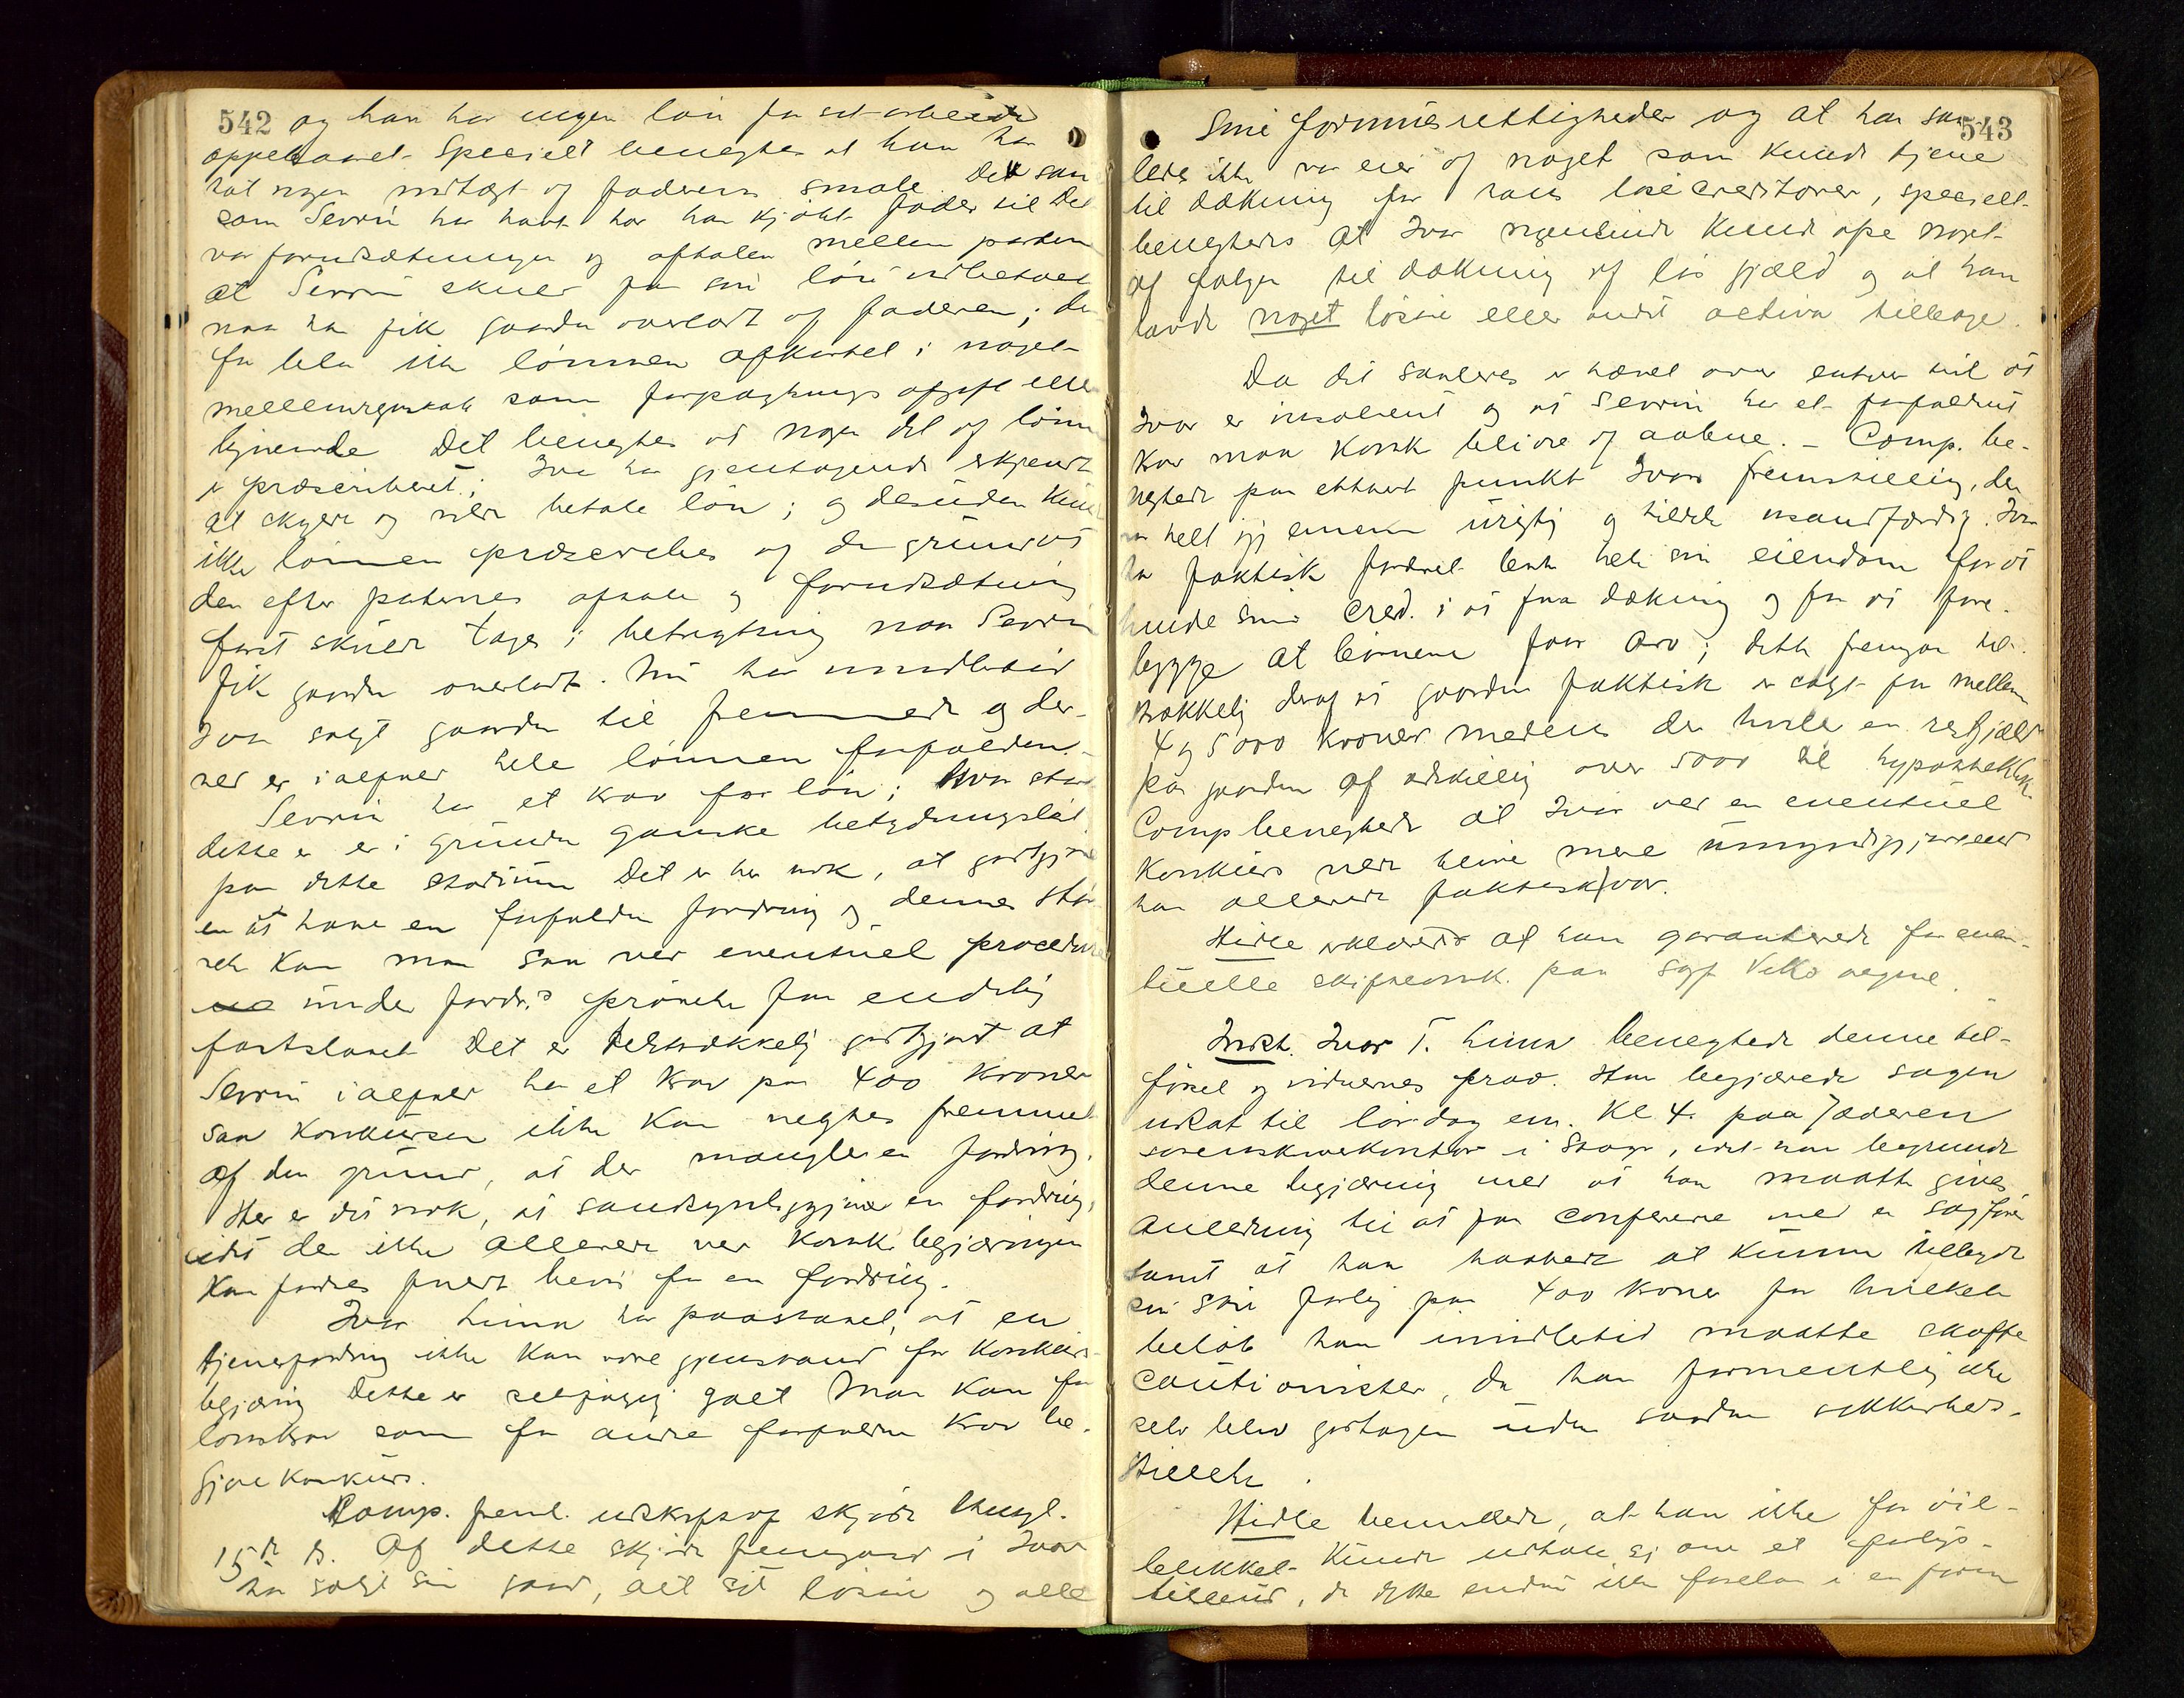 542 og han har ingen løn for sit arbeide
oppebaaret. Specielt benegtes at han har
hat nogen indtægt af faderens smale. Det saa
som Sevrin har havt har han kjøbt foder til Det
var forudsætningen og aftalen mellem parterne
at Sevrin skulde faa sin løn udbetalt
naar han fik gaarden overladt af faderen; der
for blev ikke lønnen afkortet i noget
mellemregnskab som forpagtnings afgift eller
lignende Det benegtes at nogen del af lønnen
er præscriberet; Ivar har gjentagende erkjendt
at skylde og ville betale løn; og desuden kunde
ikke lønnen præscriberes af den grund at
den efter parternes aftale og forudsætning
først skulde tages i betragtning naar Sevrin
fik gaarden overladt. Nu har imidlertid
Ivar solgt gaarden til fremmede og der-
ved er ialfald hele lønnen forfalden.
Sevrin har et krav for løn; hvor stor
dette er er i grunden ganske betydningsløst
paa dette stadium Det er her nok, at godtgjøre
en at have en forfalden fordring og dennes stør
relse kan man saa ved eventuel procedure
under fordr.s prøvelse faa endelig
fastslaaet Det er tilstrækkelig godtgjort at
Sevrin ialfald har et krav paa 400 kroner
saa konkursen ikke kan negtes fremmet
af den grund, at der mangler en fordring.
Her er det nok, at sandsynliggjøre en fordring,
idet der ikke allerede ved konk. begjæringen
kan fordres fuldt bevis for en fordring.
Ivar Lima har paastaaet, at en
tjenerfordring ikke kan være gjenstand for konkurs-
begjæring Dette er selvfølgelig galt Man kan for
lønskrav som for andre forfaldne krav be-
gjære konkurs.
Comp. freml. udskrift af skjøde thingl.
15de ds. Af dette skjøde fremgaar at Ivar
har solgt sin gaard, alt sit løsøre og alle
543
sine formuesrettigheder og at han saa-
ledes ikke var eier af noget som kunde tjene
til dækning for hans løse creditorer, specielt
benegtedes at Ivar nogensinde kunde afse noget
af følgen til dækning af løs gjæld og at han
havde noget løsøre eller andet activa tilbage.
Da det saaledes er hævet over enhver tvil at
Ivar er insolvent og at Sevrin har et forfaldent
krav maa konk blive at aabne. – Comp. be-
negtede paa ethvert punkt Ivars fremstilling, der
var helt igjennem urigtig og tildels usandfærdig. Ivar
har faktisk foræret bort hele sin eiendom for at
hindre sine cred. i at faa dækning og for at fore-
bygge at børnene faar arv; dette fremgaar til-
strækkelig deraf at gaarden faktisk er solgt for mellem
4 og 5000 kroner medens der hviler en restgjæld
paa gaarden af adskillig over 5000 til hypothekbk.
Comp benegtede at Ivar ved en eventuel
konkurs vilde blive mere umyndiggjort end
han allerede faktisk var.
Hidle erklærede at han garanterede for even-
tuelle skifteomk. paa sagf Vetts vegne.
Insst. Ivar T. Lima benegtede denne til-
førsel og vidnernes prov. Han begjærede sagen
udsat til lørdag em. Kl 4. paa Jæderen
sorenskriverkontor i Stavgr, idet han begrundede
denne begjæring med at han maatte gives
anledning til at faa conferere med en sagfører
samt at han haabede at kunne tilbyde
sin søn forlig paa 400 kroner for hvilket
beløb han imidlertid maatte skaffe
cautionister, da han formentlig ikke
selv blev godtagen uden saadan sikkerheds-
stillelse.
Hidle bemærkede, at han ikke for øie-
blikket kunde udtale sig om et forligs-
tilbud, da dette endnu ikke forelaa i en form